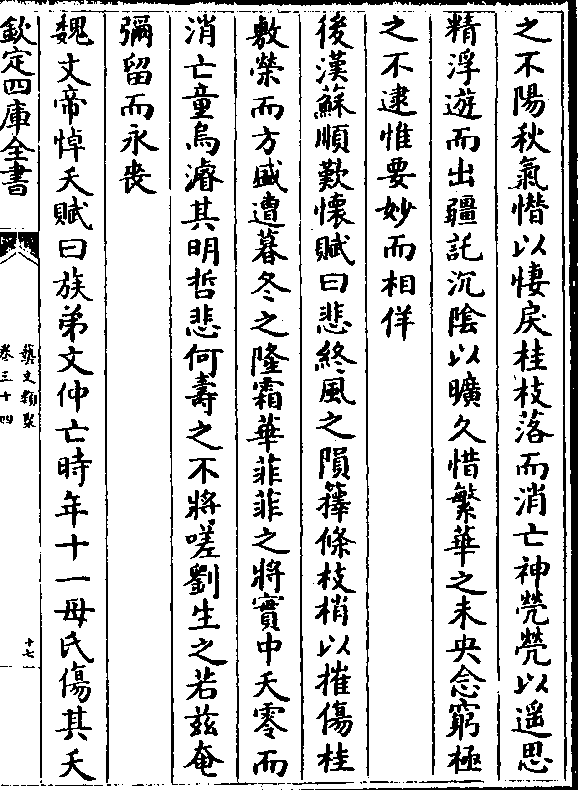 之不陽秋氣憯以悽戾桂枝落而消亡神煢煢以遥思
精浮遊而出疆託沉陰以曠久惜繁華之未央念窮極
之不逮惟要妙而相佯
後漢蘇順歎懷賦曰悲終風之隕籜條枝梢以摧傷桂
敷榮而方盛遭暮冬之隆霜華菲菲之將實中夭零而
消亡童烏濬其明哲悲何壽之不將嗟劉生之若兹奄
彌留而永喪
魏文帝悼夭賦曰族弟文仲亡時年十一母氏傷其夭
欽定四庫全書
藝文類聚
卷三十四
十七